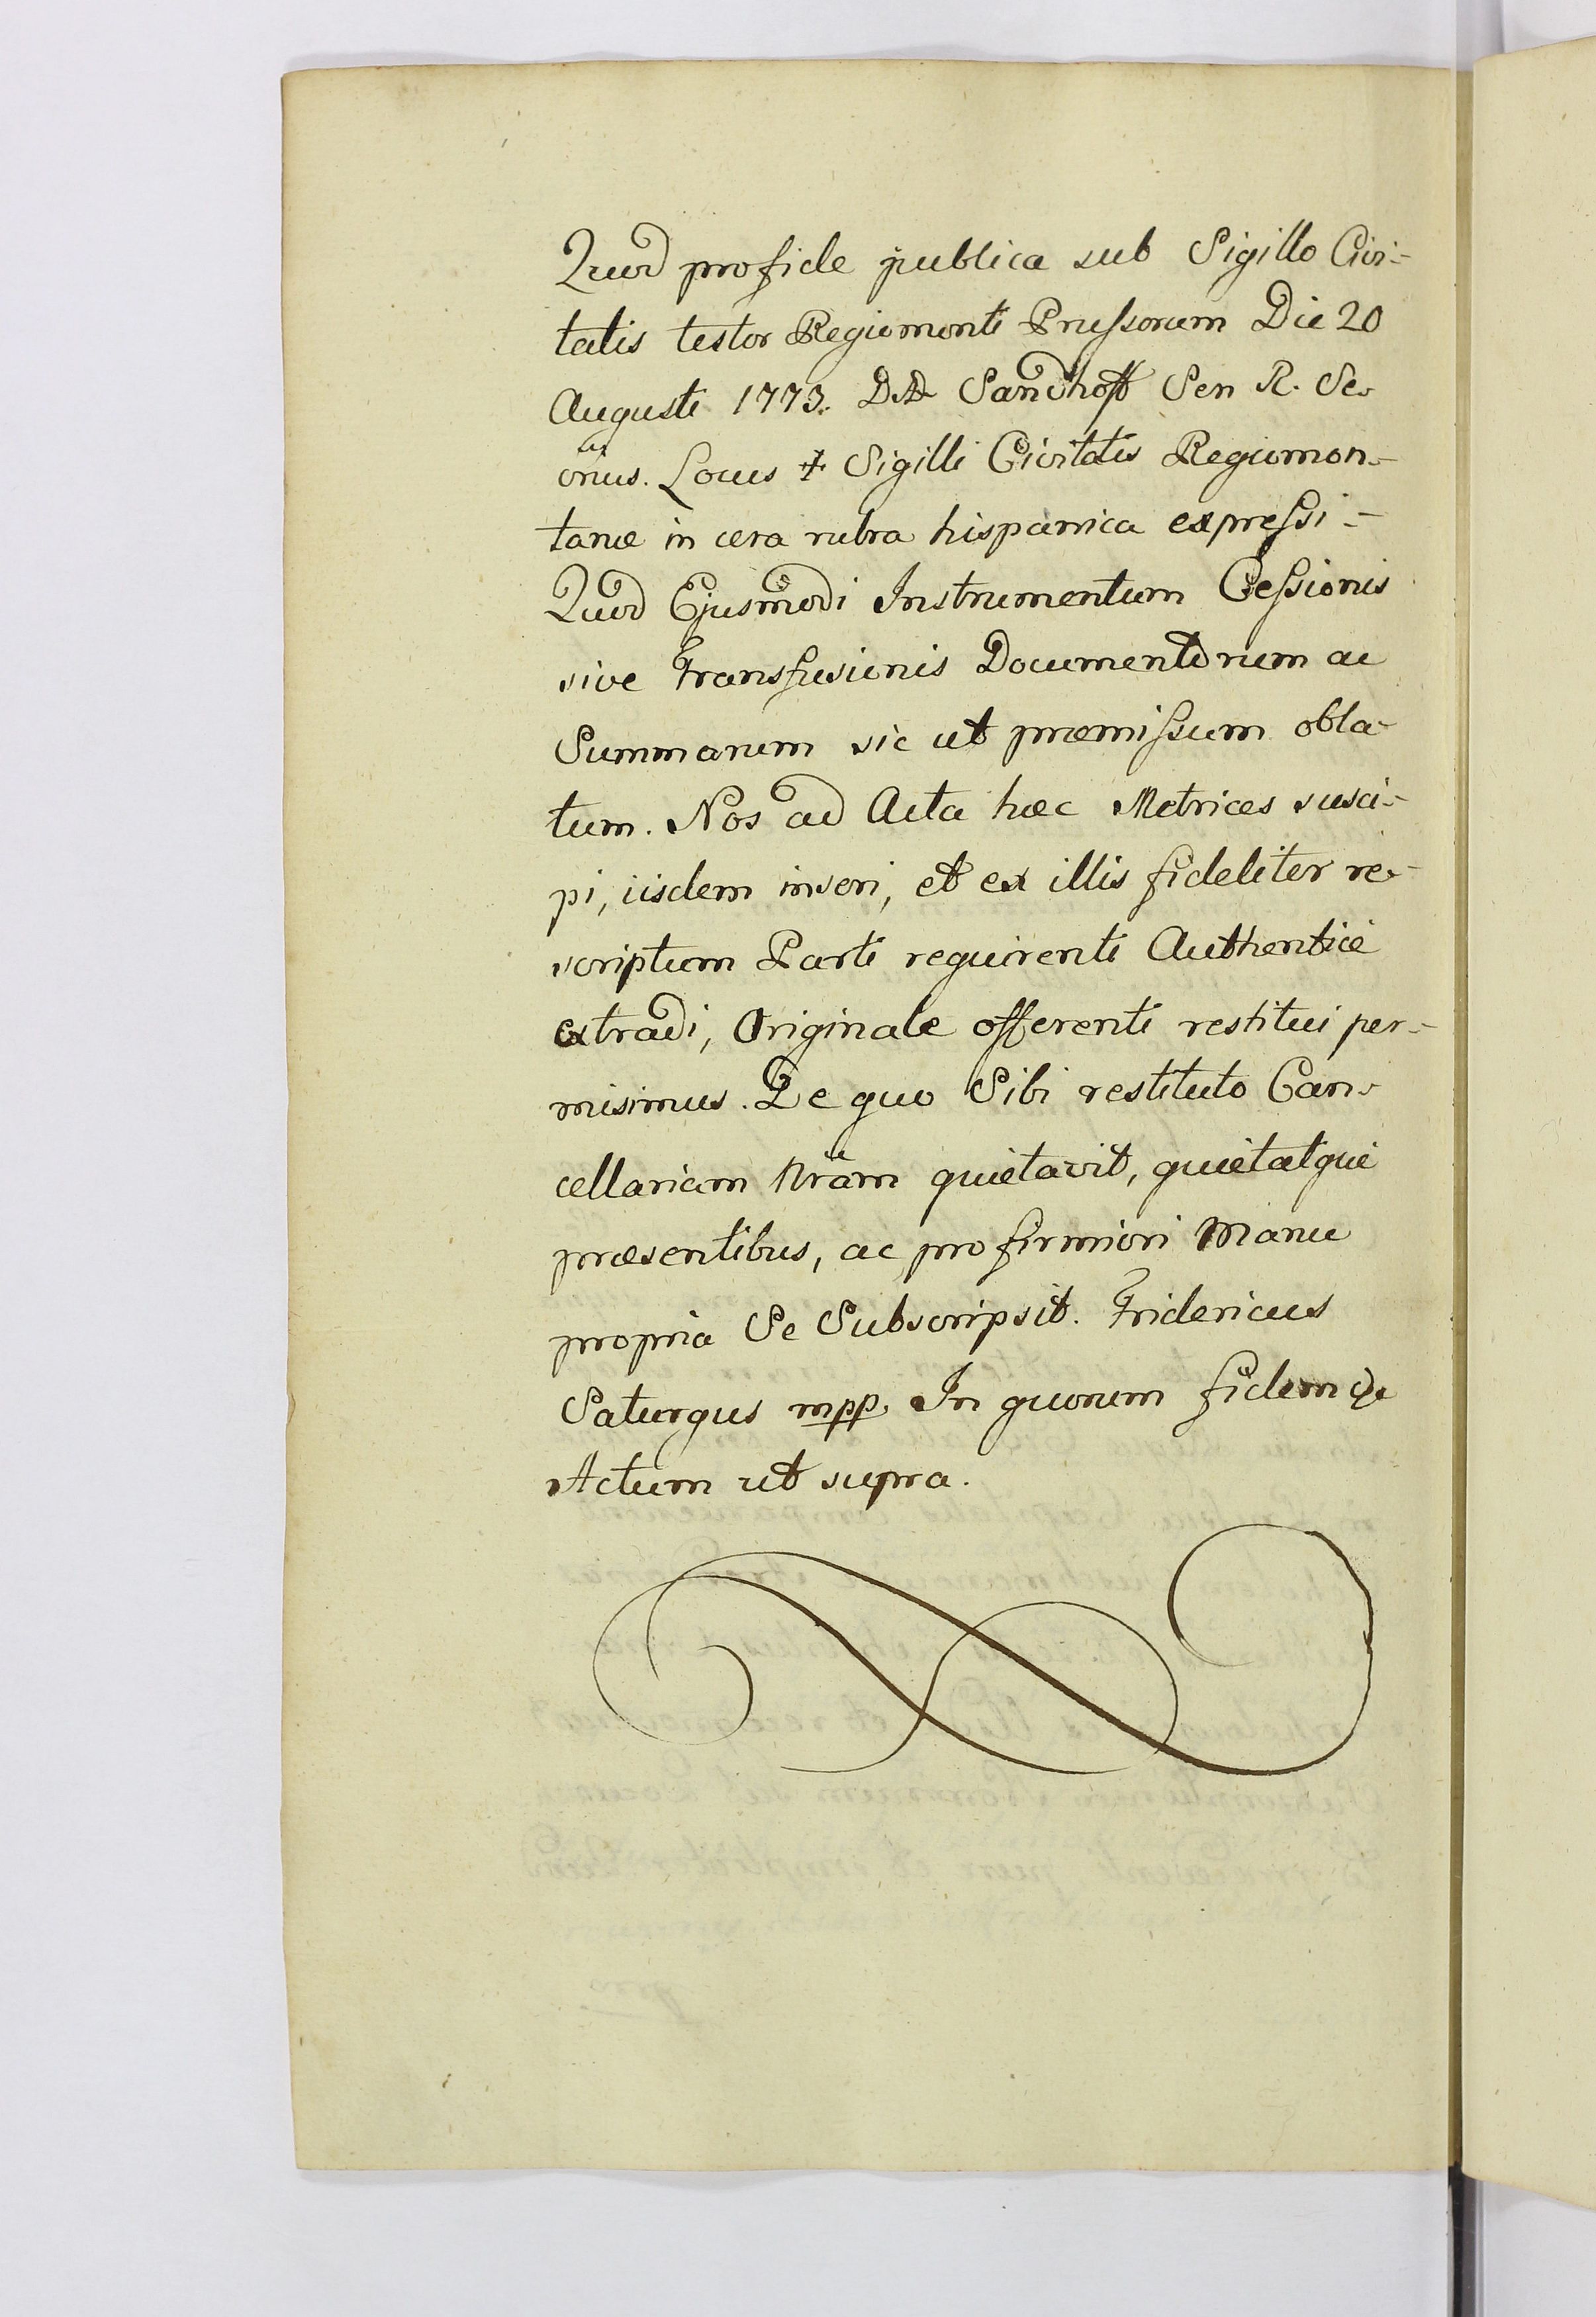 Quod pro fide publica sub Sigillo Civi-
tatis testor Regiomonti Prussorum Die 20
Augusti 1773. D. D. Sandhoff Sen R. Se-
crius. Locus ‡ Sigilli Civitatis Regiomon-
tanæ in cera rubra hispanica expressi-
Quod Ejusmodi Instrumentum Cessionis
sive Transfusionis Documentorum ac
Summarum sic ut præmissum obla-
tum. Nos ad Acta hæc Metrices susci-
pi, iisdem inseri, et ex illis fideliter re-
scriptum Parti requirenti Authentice
extradi, Originale offerenti restitui per-
misimus. De quo Sibi restituto Can-
cellariam Nram quietavit, quietatque
præsentibus, ac pro firmiori Manu
propria Se Subscripsit. Fridericus
Saturgus mpp. In quorum fidem &
Actum ut supra.